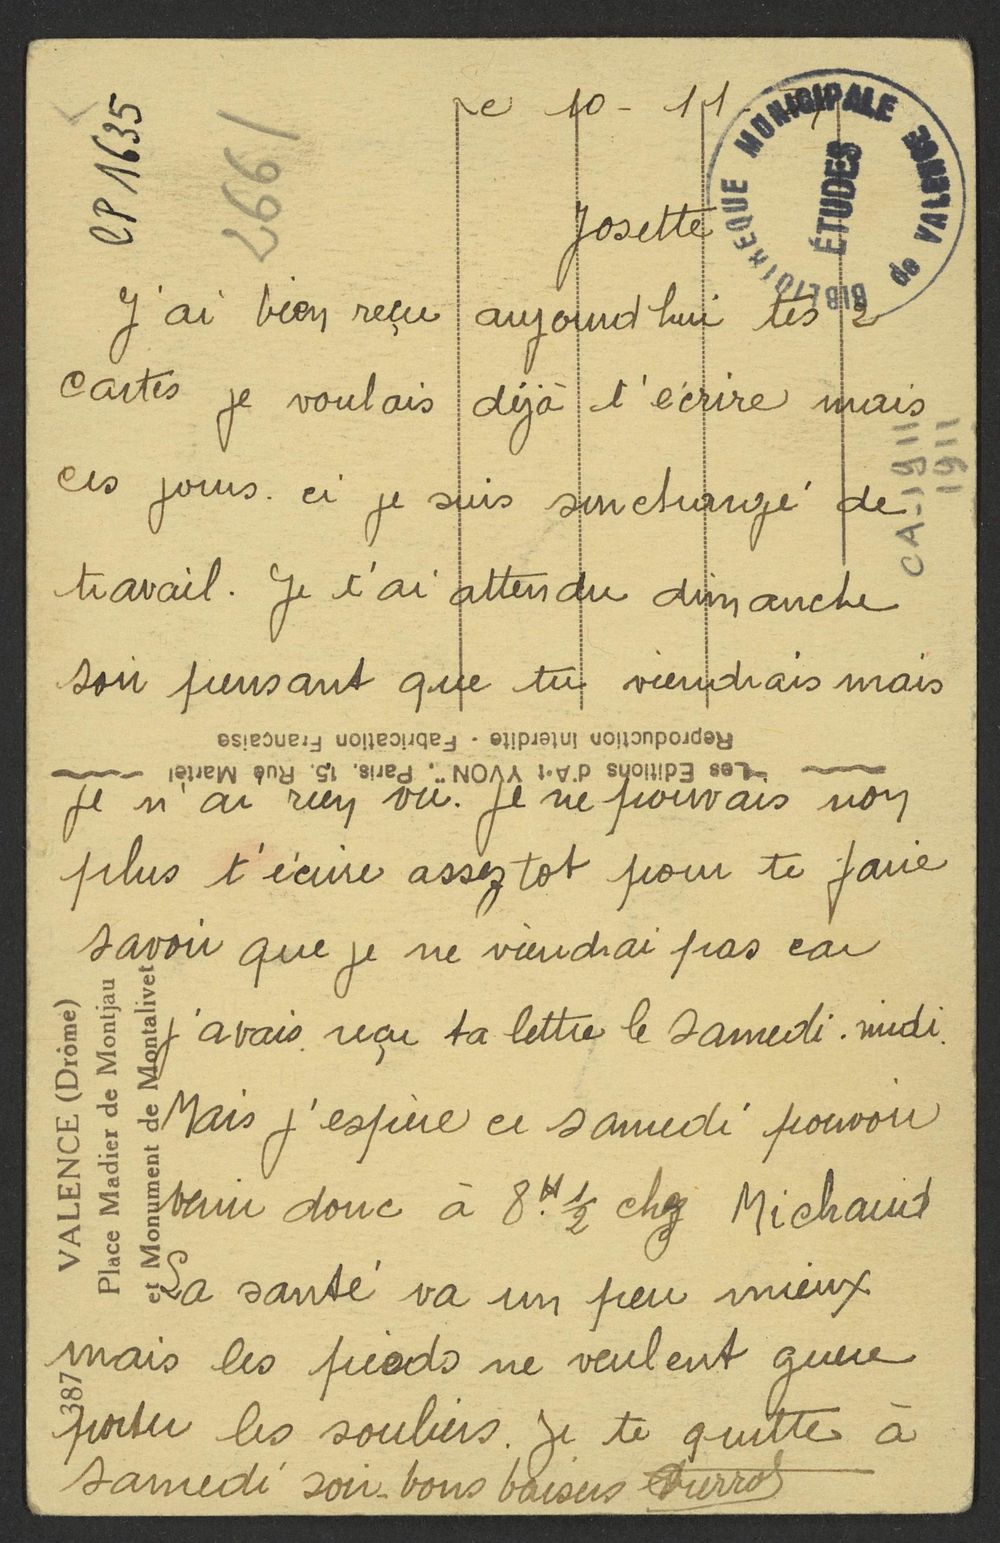 CP 1635
2661
Le 10-11-
BIBLIOTHEQUE MUNICIPALE de VALENCE
ÉTUDES
Josette
J'ai bien reçu aujourd hui tes 2
cartes je voulais déjà t'écrire mais
ces jours. ci je suis surchargé de
travail. Je t'ai attendu dimanche
soir pensant que tu viendrais mais
je n'ai rien vu. Je ne pouvais non
plus t'écrire assez tot pour te faire
savoir que je ne viendrai pas car
j'avais reçu ta lettre le Samedi. midi.
Mais j'espère ce samedi pouvoir
venir donc à 8H 1/2 chez Michaud
La santé va un peu mieux
mais les pieds ne veulent guere
porter les souliers. Je te quitte à
samedi soir. bons baisers
CA-1911
1911
Reproduction Interdite - Fabrication Française
"Les Editions d'Art YVON", Paris, 15, Rue Martel
387 VALENCE (Drôme)
Place Madier de Montjau
et Monument de Montalivet